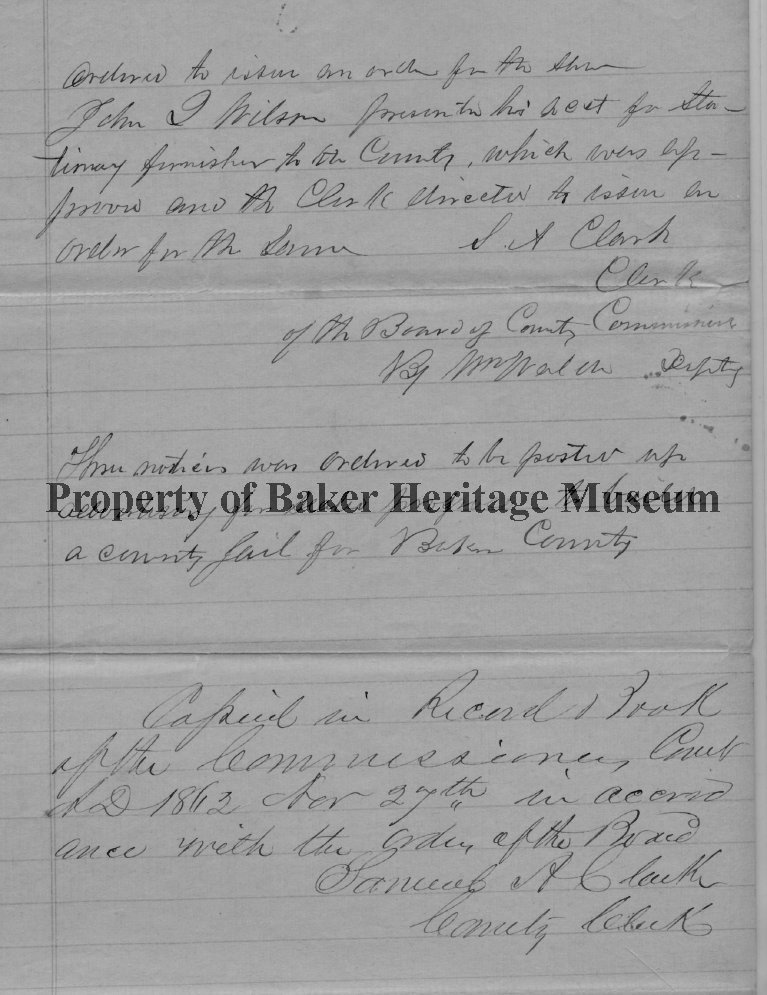 ordered to issue an order for the same
John Q Wilson presented his acct for Sta-
tionary furnished to the County, which was ap-
proved and the Clerk directed to issue an
order for the same S. A Clark
Clerk
of the Board of County Commissioners
By Wm Deputy
Three notices was ordered to be posted up
Property of Baker Heritage Museum
advertising for to build
a county Jail for Baker County
Copied in Record Book
of the Commissioners Court
AD 1862 Nov 27th in accord
ance with the order of the Board
Samuel A Clark
County Clerk